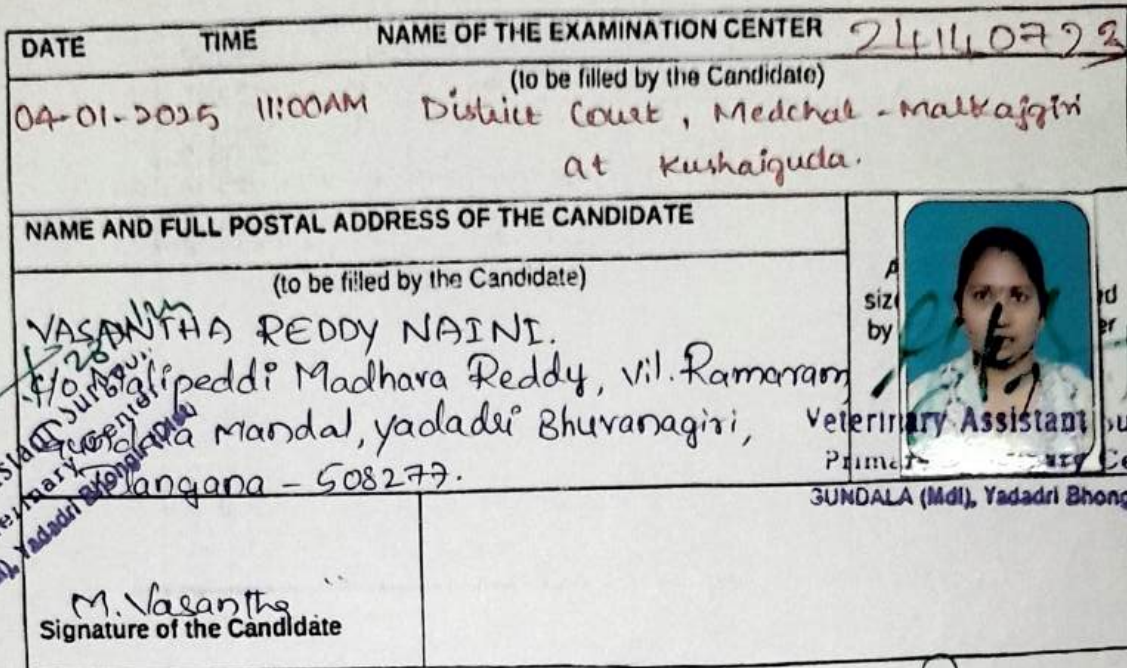 DATE TIME NAME OF THE EXAMINATION CENTER 24140723
(to be filled by the Candidate)
04-01-2025 11:00AM District Court, Medchal - Malkajgiri
at Kushaiguda.
NAME AND FULL POSTAL ADDRESS OF THE CANDIDATE
(to be filled by the Candidate)
VASANTHA REDDY NAINI.
Madhava Reddy, Vil. Ramaram
Mandal, yadadri Bhuvanagiri,
- 508277.
siz
by
Veterinary Assistant
GUNDALA (Mdl), Yadadri Bhong
M. Vasantha
Signature of the Candidate